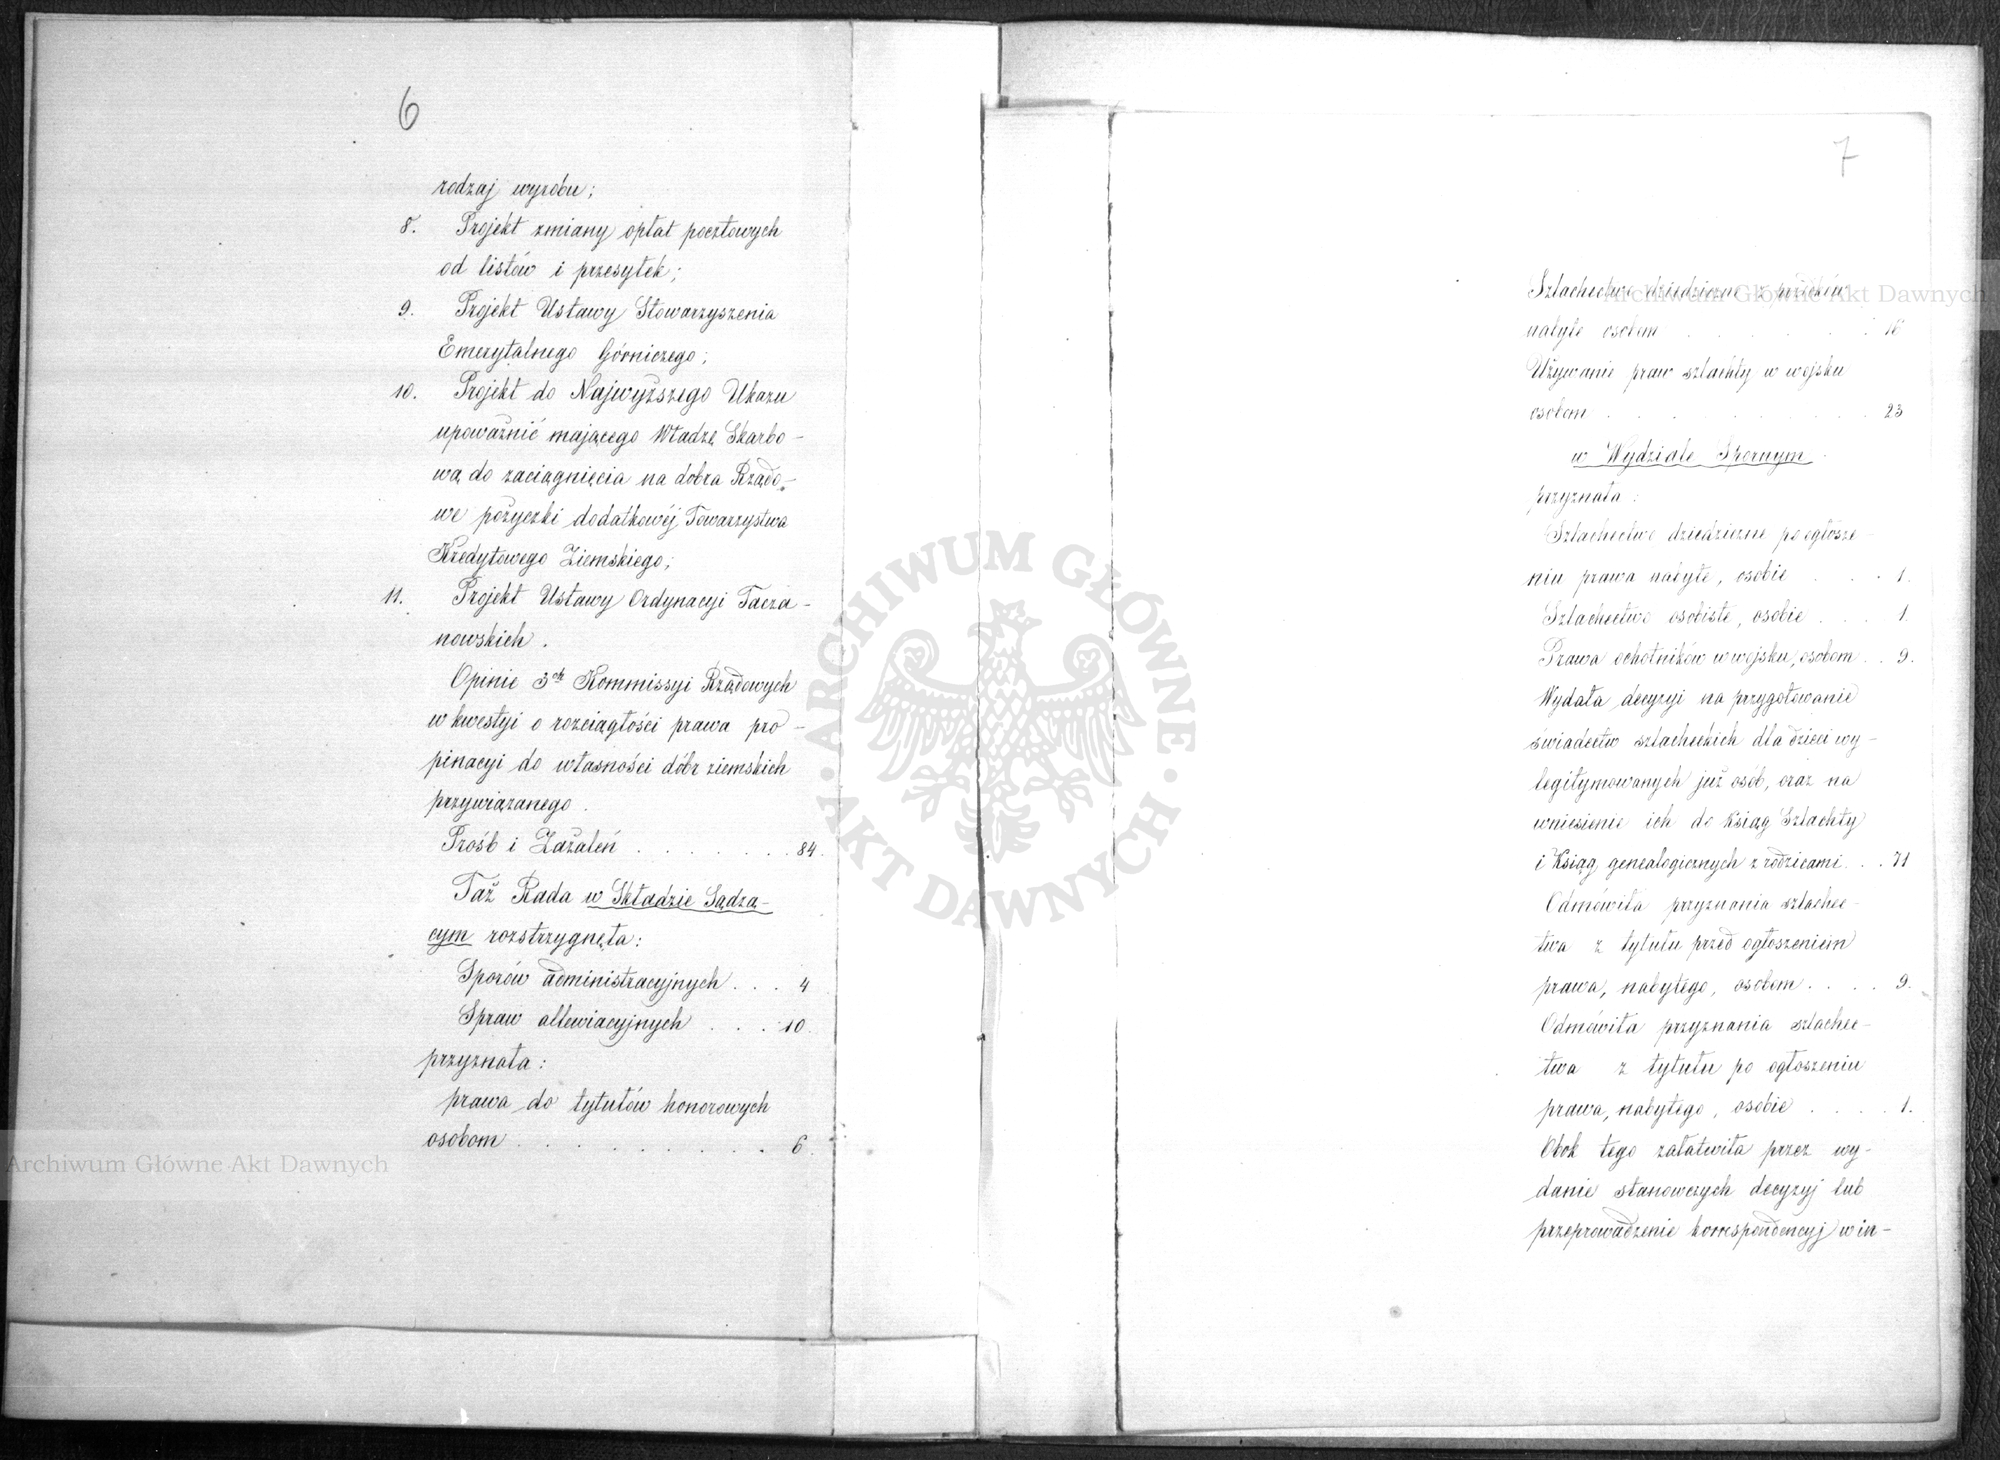 6
rodzaj wyrobu;
8. Projekt zmiany opłat pocztowych
od listów i przesyłek;
9. Projekt Ustawy Stowarzyszenia
Emerytalnego Górniczego;
10. Projekt do Najwyższego Ukazu
upoważnić mającego Władzę Skarbo-
wą do zaciągnięcia na dobra Rządo-
we pożyczki dodatkowéj Towarzystwa
Kredytowego Ziemskiego;
11. Projekt Ustawy Ordynacyi Tacza-
nowskich.
Opinie 3ch Kommissyi Rządowych
w kwestyi o rozciągłości prawa pro-
pinacyi do własności dóbr ziemskich
przywiązanego.
Prośb i Zażaleń . . . . . . . 84.
Taż Rada w Składzie Sądzą-
cym rozstrzygnęła:
Sporów administracyjnych . . . 4
Spraw allewiacyjnych . . . 10.
przyznała:
prawa do tytułów honorowych
osobom . . . . . . . . . 6.
7
Szlachectwo dziedziczne z
nabyte osobom . . . . . . 16
Używanie praw szlachty w wojsku
osobom . . . . . . . . 23
w Wydziale Spornym.
przyznała:
Szlachectwo dziedziczne po ogłosze-
niu prawa nabyte, osobie . . . . 1.
Szlachectwo osobiste, osobie . . . . 1.
Prawa ochotników w wojsku, osobom . . 9.
Wydała decyzyi na przygotowanie
świadectw szlacheckich dla dzieci wy-
legitymowanych już osób, oraz na
wniesienie ich do Ksiąg Szlachty
i Ksiąg genealogicznych z rodzicami . . . 71
Odmówiła przyznania szlachec-
twa z tytułu przed ogłoszeniem
prawa, nabytego, osobom . . . . 9.
Odmówiła przyznania szlachec-
twa z tytułu po ogłoszeniu
prawa, nabytego, osobie . . . . 1.
Obok tego załatwiła przez wy-
danie stanowczych decyzyj lub
przeprowadzenie korrespondencyj w in-
Archiwum Główne Akt Dawnych
Archiwum Główne Akt Dawnych
ARCHIWUM GŁÓWNE
AKT DAWNYCH